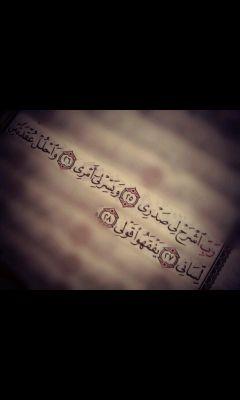 رَبِّ ٱشْرَحْ لِى صَدْرِى ٢٥ وَيَسِّرْ لِىٓ أَمْرِى ٢٦ وَٱحْلُلْ عُقْدَةً مِّن
لِّسَانِى ٢٧ يَفْقَهُوا۟ قَوْلِى ٢٨